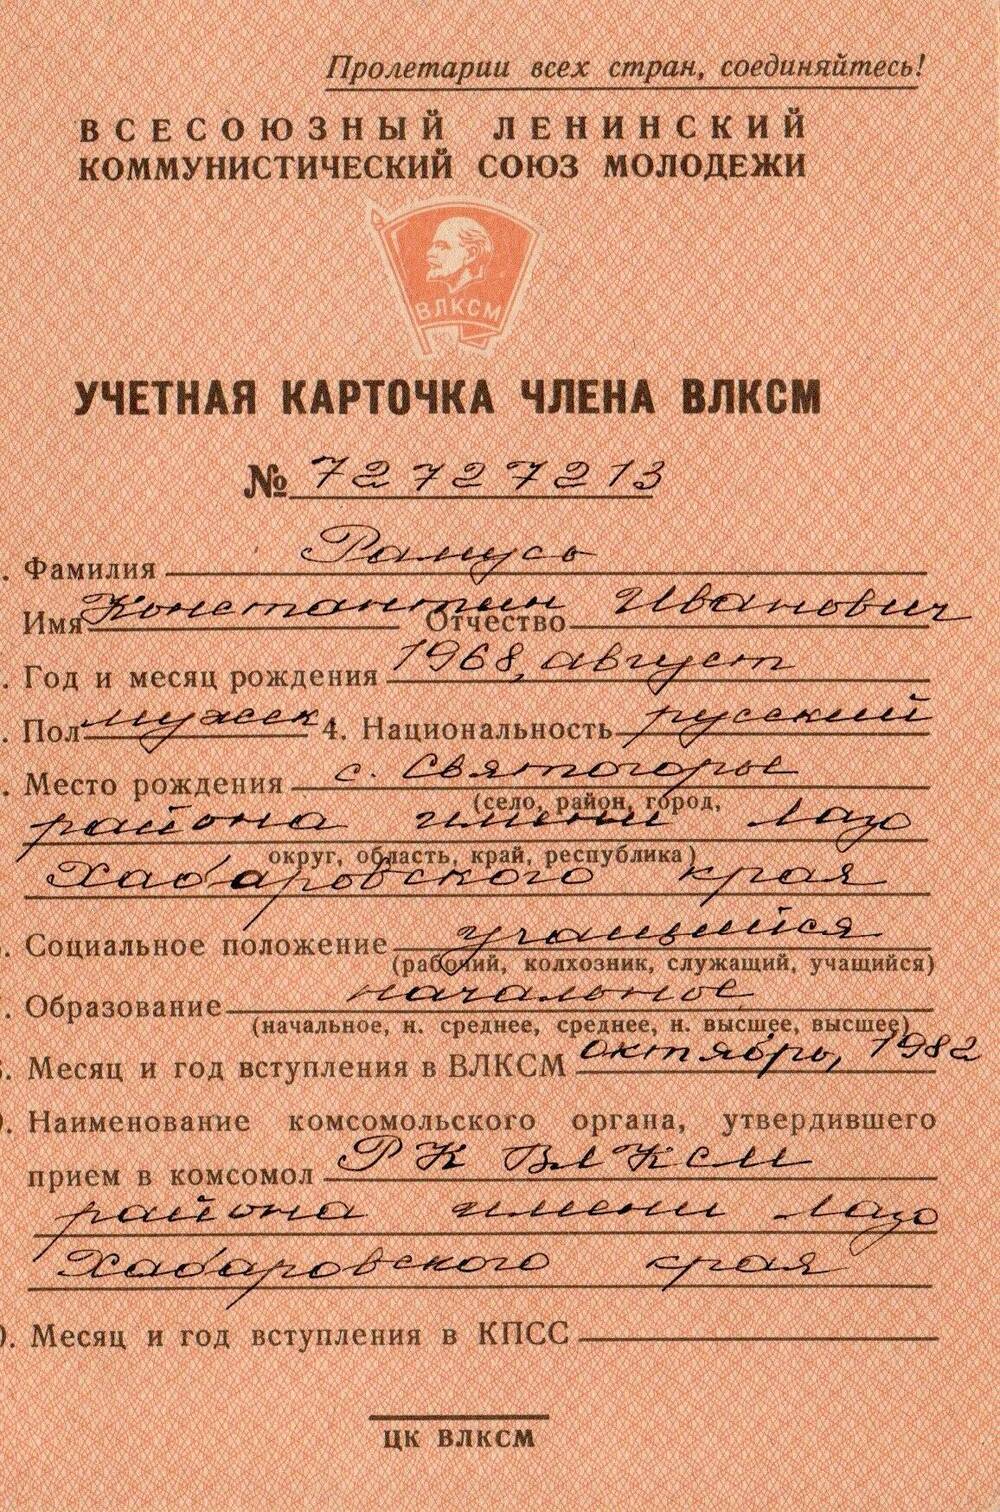 Пролетарии всех стран, соединяйтесь!
ВСЕСОЮЗНЫЙ ЛЕНИНСКИЙ
КОММУНИСТИЧЕСКИЙ СОЮЗ МОЛОДЕЖИ
ВЛКСМ
УЧЕТНАЯ КАРТОЧКА ЧЛЕНА ВЛКСМ
№ 72727213
. Фамилия Рамусь
Имя Константин Отчество Иванович
. Год и месяц рождения 1968, август
. Пол мужск 4. Национальность русский
. Место рождения с. Святогорье
(село, район, город,
района имени Лазо
округ, область, край, республика)
Хабаровского края
. Социальное положение учащийся
(рабочий, колхозник, служащий, учащийся)
. Образование начальное
(начальное, н. среднее, среднее, н. высшее, высшее)
. Месяц и год вступления в ВЛКСМ октябрь, 1982
. Наименование комсомольского органа, утвердившего
прием в комсомол РК ВЛКСМ
района имени Лазо
Хабаровского края
. Месяц и год вступления в КПСС
ЦК ВЛКСМ